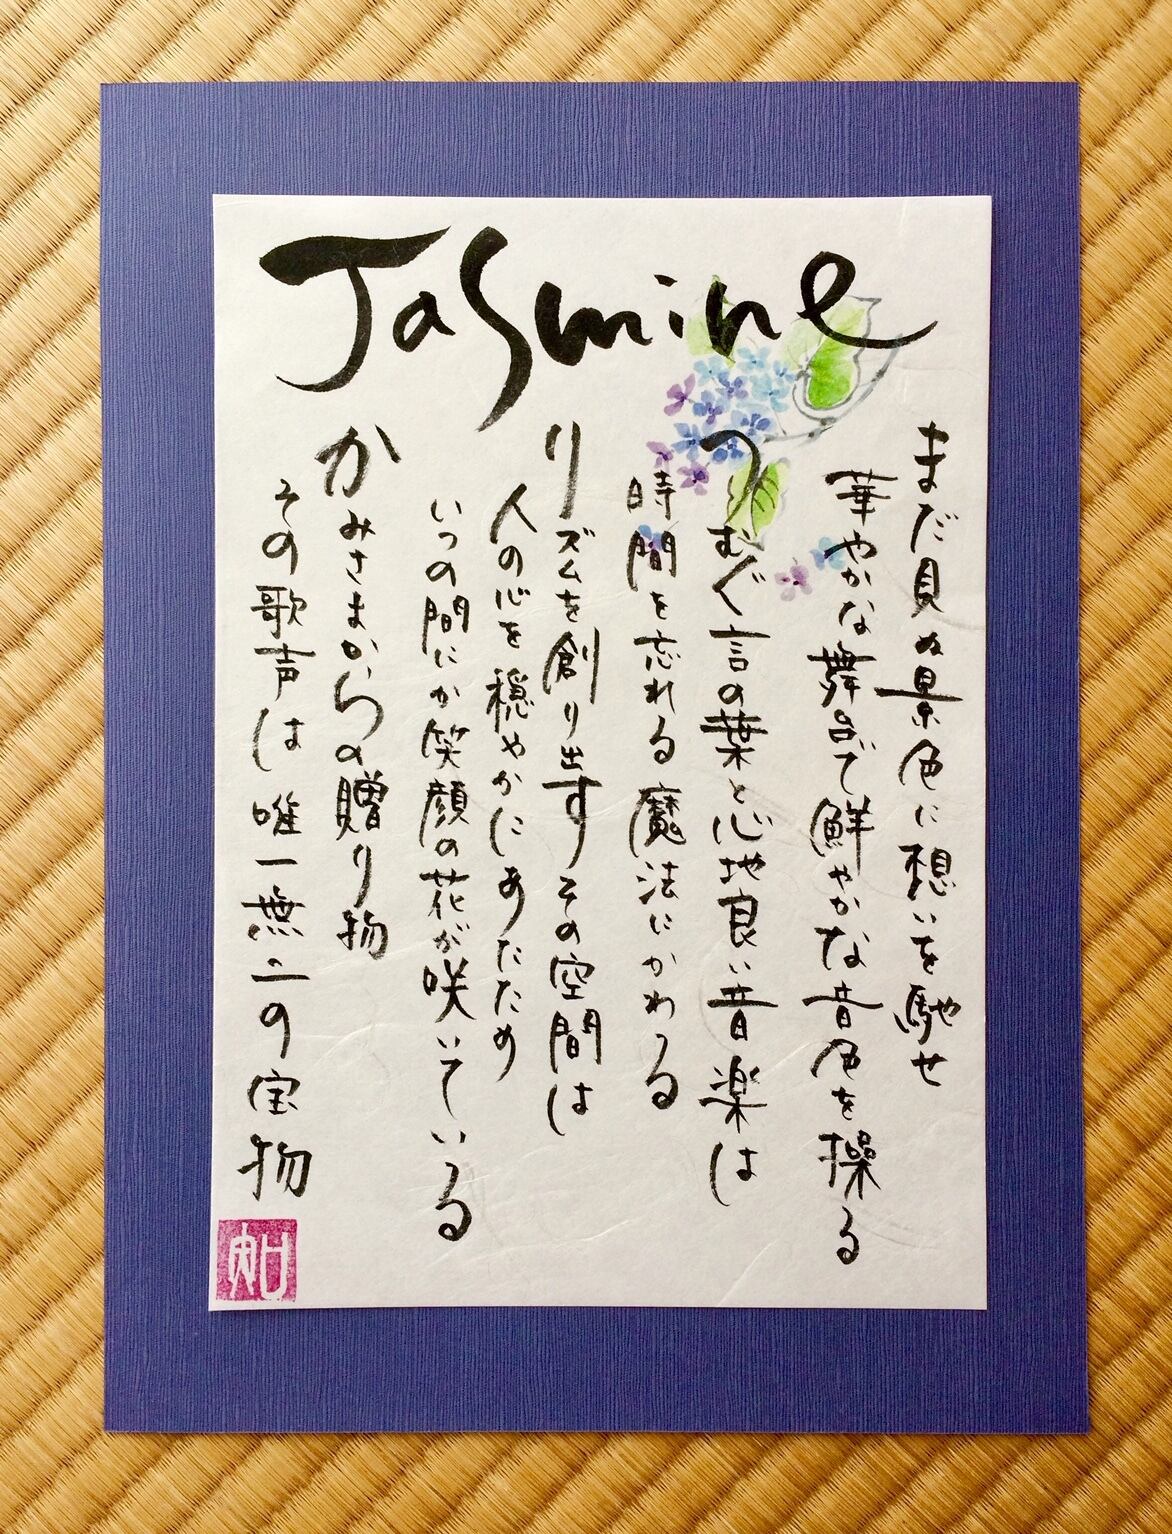 Jasmine
まだ見ぬ景色に想いを馳せ
華やかな舞台で鮮やかな音色を操る
つむぐ言の葉と心地良い音楽は
時間を忘れる魔法にかわる
リズムを創り出すその空間は
人の心を穏やかにあたため
いつの間にか笑顔の花が咲いている
かみさまからの贈り物
その歌声は唯一無二の宝物